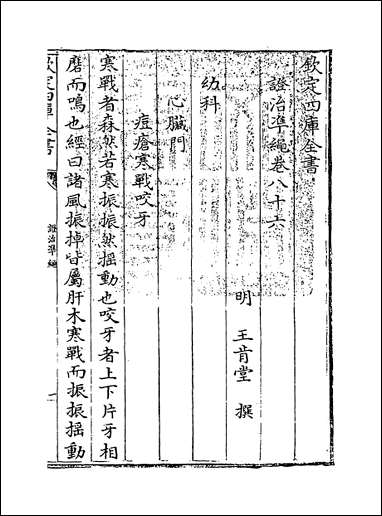 欽定四庫全書
證治準繩卷八十六
明 王肯堂 撰
幼科
心臓門
痘瘡寒戰咬牙
寒戰者森然若寒振振然摇動也咬牙者上下片牙相
磨而鳴也經曰諸風振掉皆屬肝木寒戰而振振揺動
欽定四庫全書
證治準繩
一